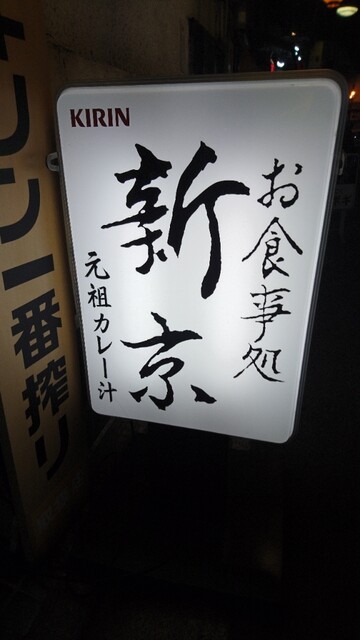 KIRIN
お食事処
新京
元祖カレー汁
キリン一番搾り